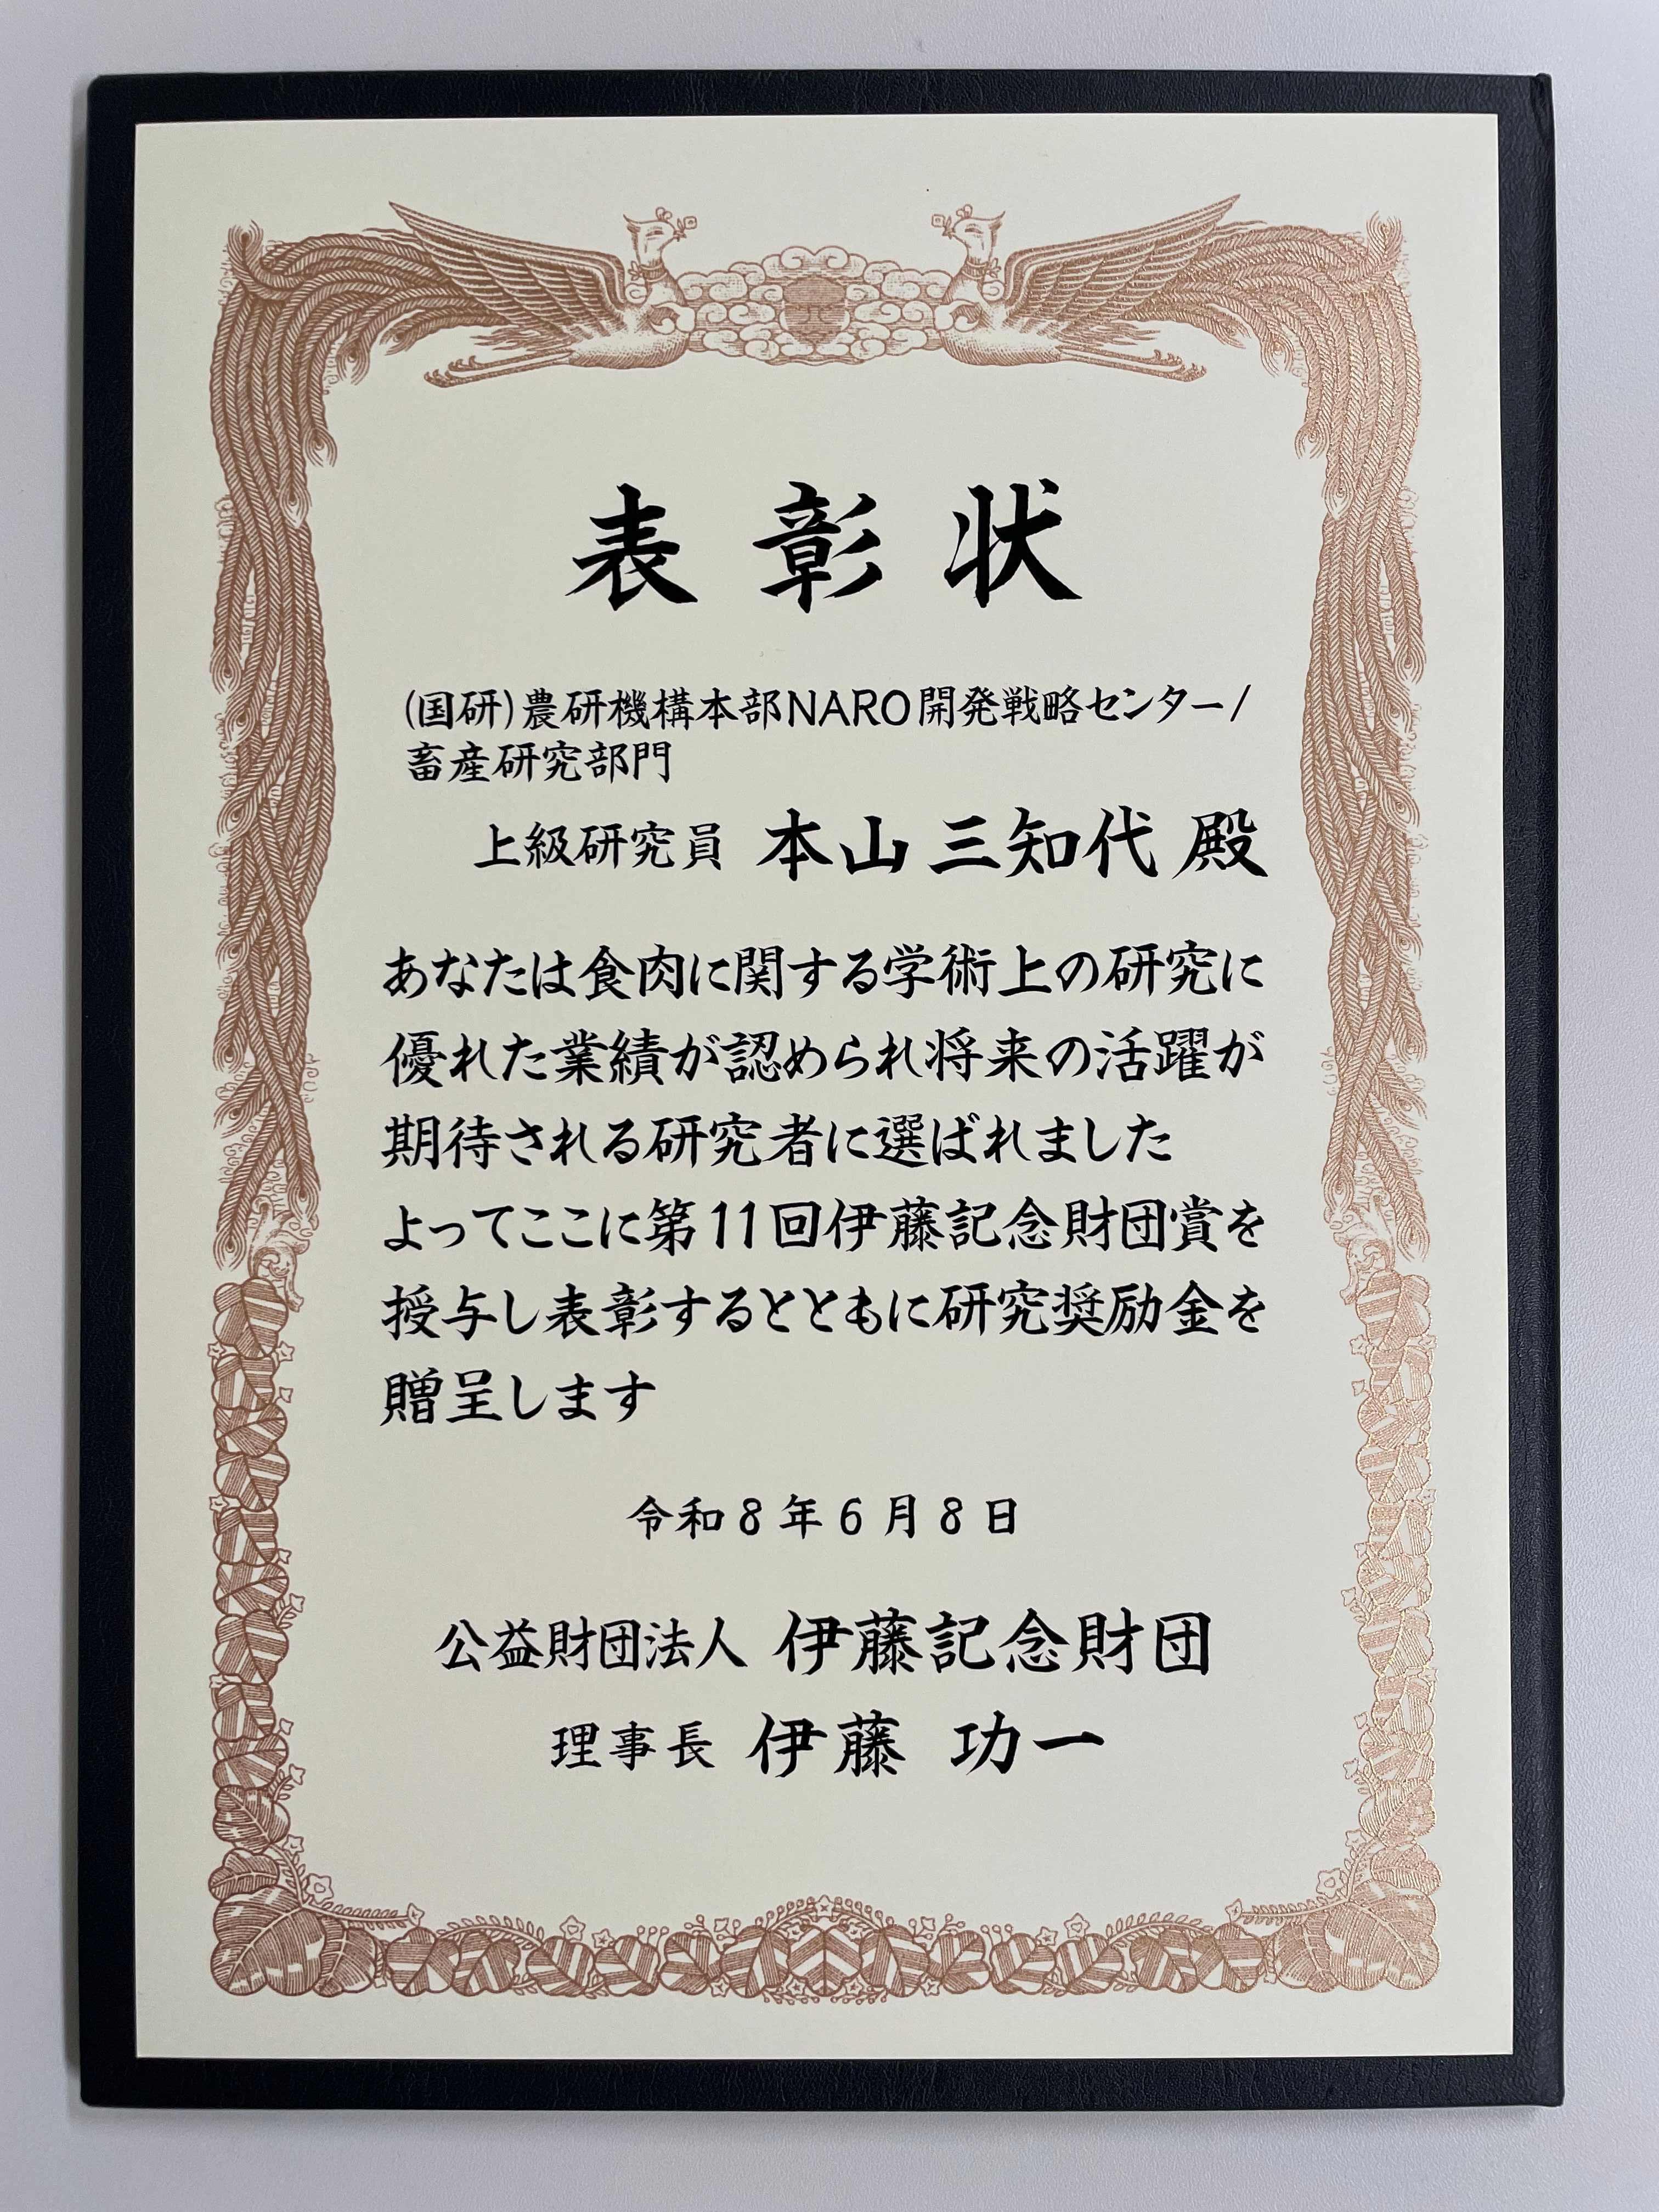 表彰状
(国研)農研機構本部NARO開発戦略センター/
畜産研究部門
上級研究員 本山 三知代 殿
あなたは食肉に関する学術上の研究に
優れた業績が認められ将来の活躍が
期待される研究者に選ばれました
よってここに第11回伊藤記念財団賞を
授与し表彰するとともに研究奨励金を
贈呈します
令和8年6月8日
公益財団法人 伊藤記念財団
理事長 伊藤 功一